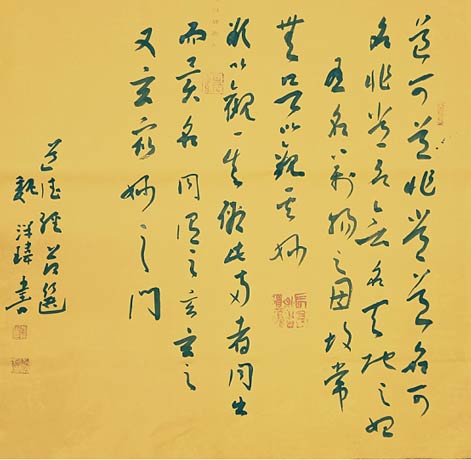 道可道非常道名可
名非常名无名天地之始
有名万物之母故常
無欲以觀其妙
欲以觀其徼此两者同出
而異名同謂之玄玄之
又玄眾妙之門
道德經節選
書